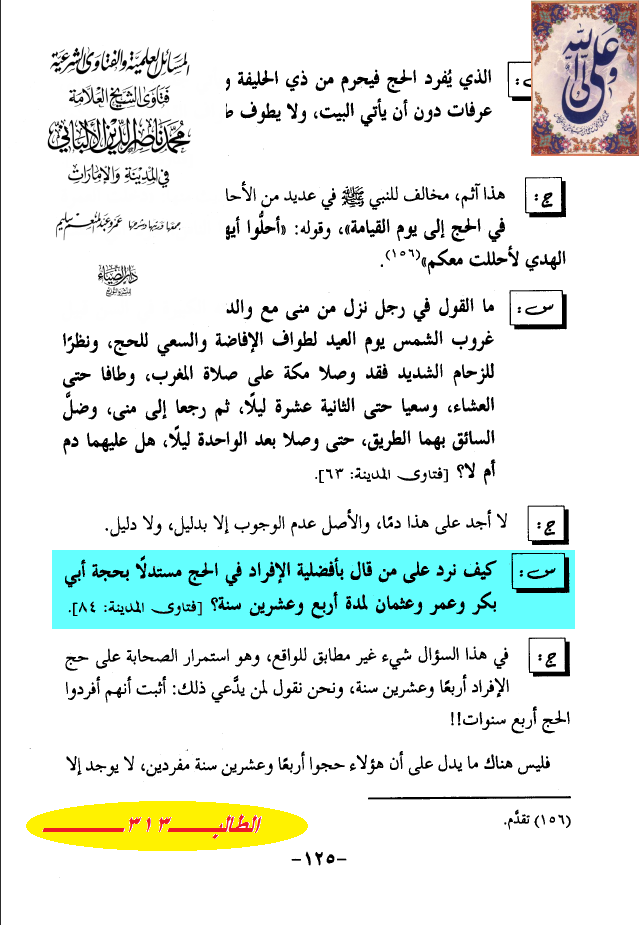 المسائل العلمية والفتاوى الشرعية
فتاوى الشيخ العلامة
محمد ناصر الدين الألباني
في المدينة والإمارات
جمعها ورتبها وشرحها عمرو عبد المنعم سليم
دار الضياء
علي ولي الله
الذي يُفرد الحج فيحرم من ذي الحليفة و
عرفات دون أن يأتي البيت، ولا يطوف ط
ج: هذا آثم، مخالف للنبي ﷺ في عديد من الأحا
في الحج إلى يوم القيامة»، وقوله: «أحلُّوا أيه
الهدي لأحللت معكم»(١٥٦).
س: ما القول في رجل نزل من منى مع والد
غروب الشمس يوم العيد لطواف الإفاضة والسعي للحج، ونظرًا
للزحام الشديد فقد وصلا مكة على صلاة المغرب، وطافا حتى
العشاء، وسعيا حتى الثانية عشرة ليلًا، ثم رجعا إلى منى، وضلَّ
السائق بهما الطريق، حتى وصلا بعد الواحدة ليلًا، هل عليهما دم
أم لا؟ [فتاوى المدينة: ٦٣].
ج: لا أجد على هذا دمًا، والأصل عدم الوجوب إلا بدليل، ولا دليل.
س: كيف نرد على من قال بأفضلية الإفراد في الحج مستدلًا بحجة أبي
بكر وعمر وعثمان لمدة أربع وعشرين سنة؟ [فتاوى المدينة: ٨٤].
ج: في هذا السؤال شيء غير مطابق للواقع، وهو استمرار الصحابة على حج
الإفراد أربعًا وعشرين سنة، ونحن نقول لمن يدَّعي ذلك: أثبت أنهم أفردوا
الحج أربع سنوات!!
فليس هناك ما يدل على أن هؤلاء حجوا أربعًا وعشرين سنة مفردين، لا يوجد إلا
(١٥٦) تقدَّم.
الطالب ٣١٣
-١٢٥-